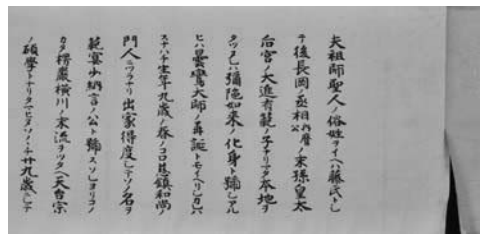 夫祖師聖人ノ俗姓ヲイヘハ藤氏トシ
テ後長岡ノ丞相内麿公ノ末孫皇太
后宮ノ大進有範ノ子ナリマタ本地ヲ
タツヌレハ彌陁如来ノ化身ト號シアル
ヒハ曇鸞大師ノ再誕トモイヘリシカレハ
スナハチ生年九歳ノ春ノコロ慈鎮和尚ノ
門人ニツラナリ出家得度シテソノ名ヲ
範宴少納言ノ公ト號スソレヨリコノ
カタ楞嚴横川ノ末流ヲツタヘ天台宗
ノ碩學トナリタマヒヌソノノチ廿九歳ニシテ